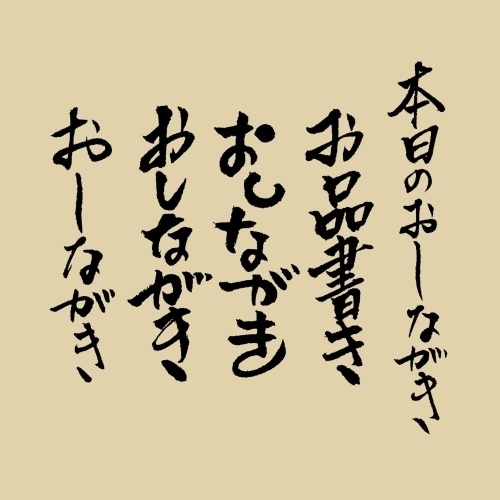 本日のおしながき
お品書き
おしながき
おしながき
おしながき